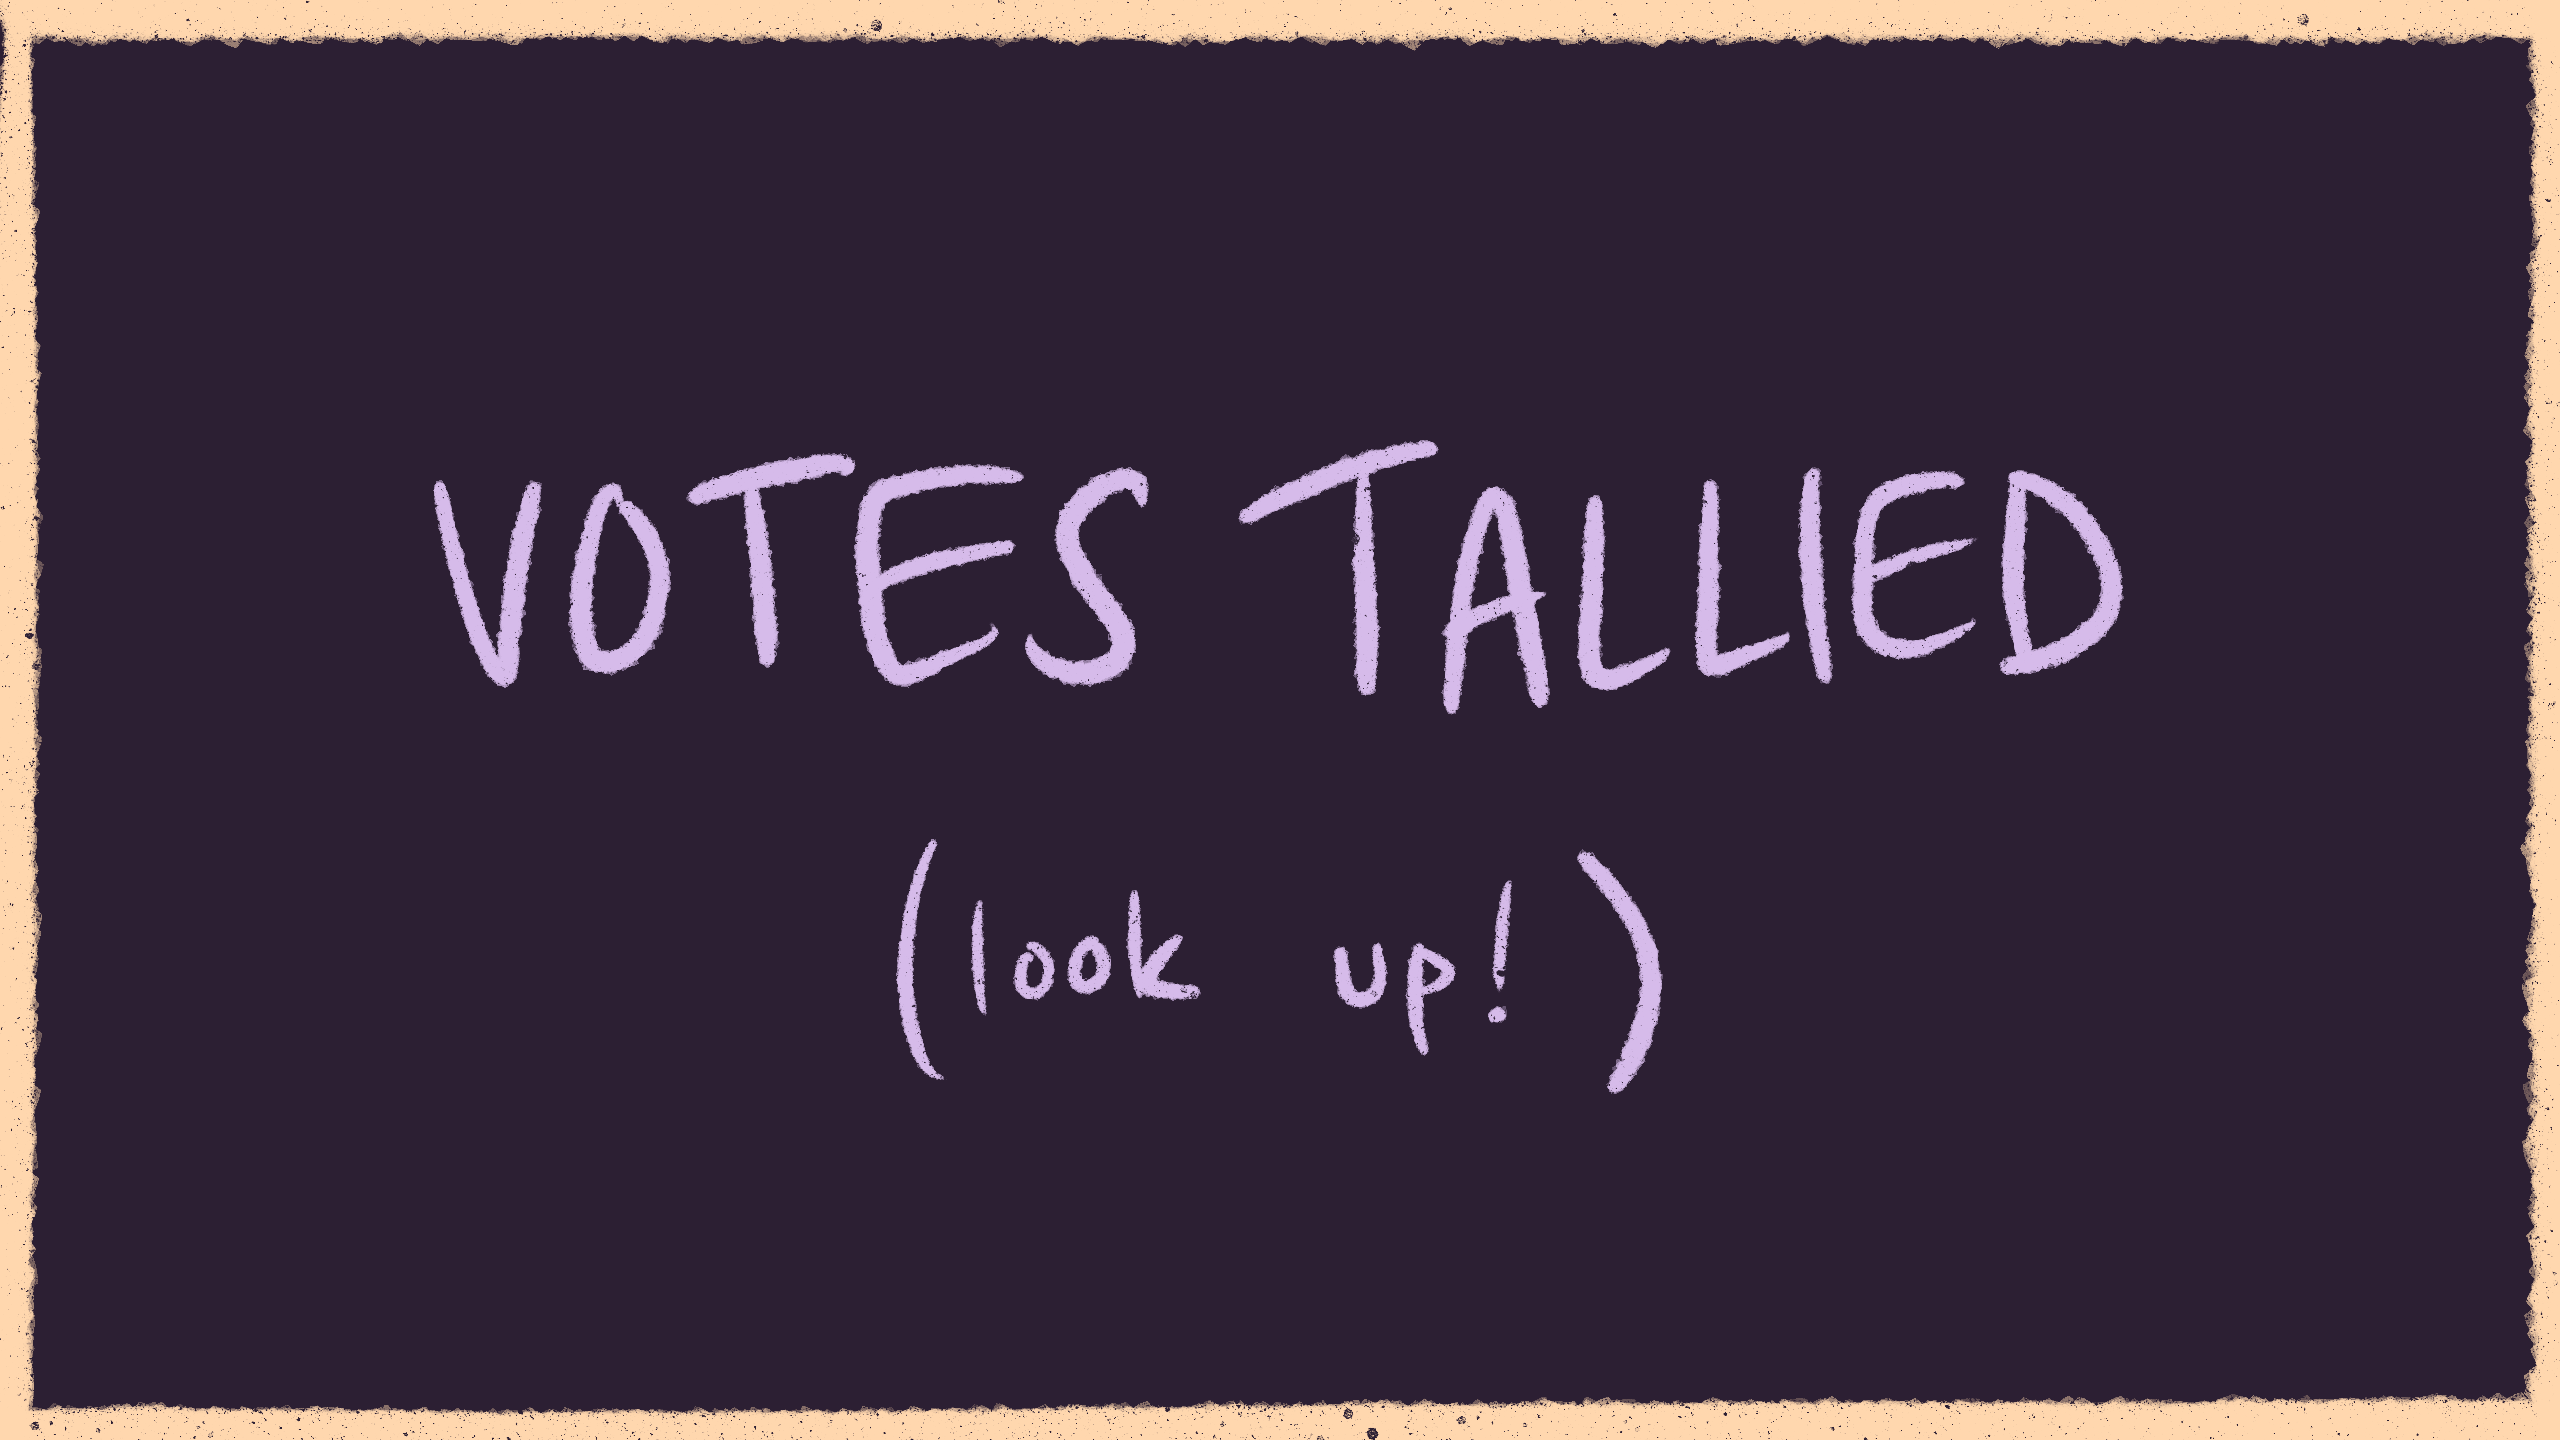 VOTES TALLIED
(look up!)